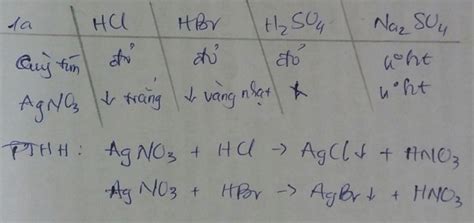 1a HCl HBr H₂SO₄ Na₂SO₄
Quỳ tím đỏ đỏ đỏ k° ht
AgNO₃ ↓ trắng ↓ vàng nhạt k° ht
PTHH: AgNO₃ + HCl → AgCl↓ + HNO₃
AgNO₃ + HBr → AgBr↓ + HNO₃